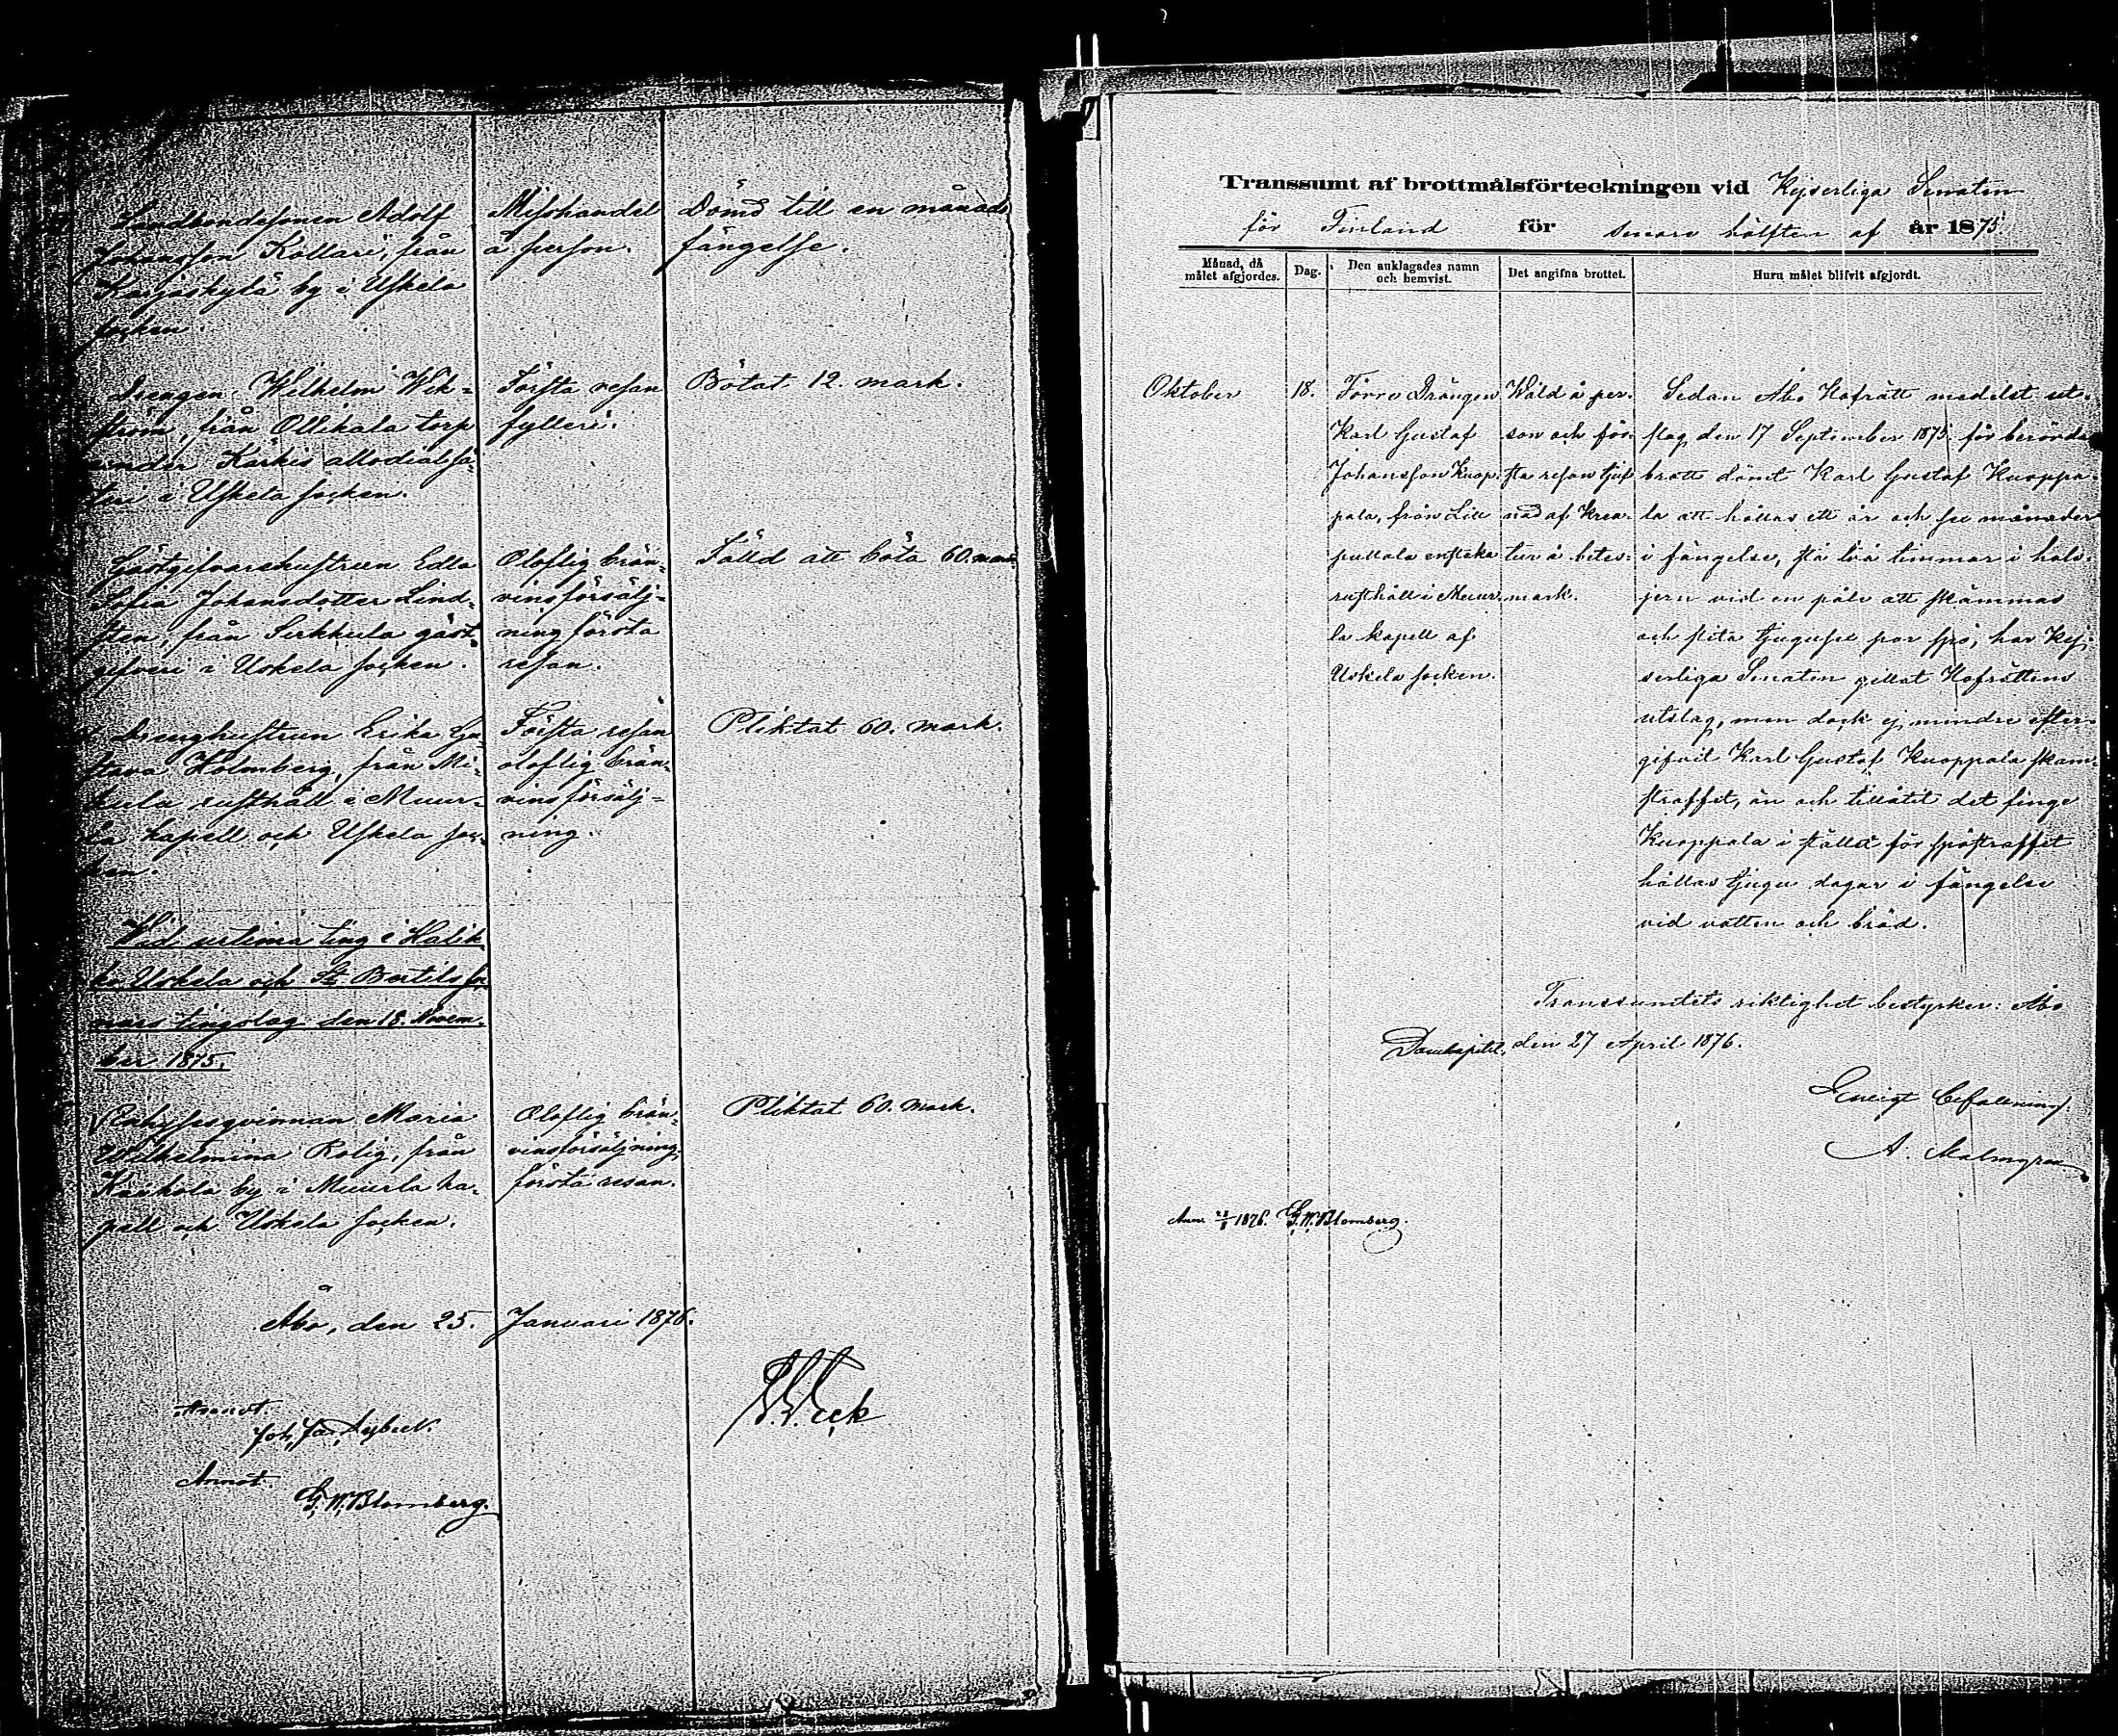 Landbondesonen Adolf
Johansson Kollari, från
Karjaskylä by i Uskela
socken.
Misshandel
å person.
Dömd till en månads
fängelse.
Drengen Wilhelm Wek-
ström, från Ollikala torp
under Kärkis allodialsä-
teri i Uskela socken.
Första resan
fylleri.
Bötat 12. mark.
Gästgifvarehustrun Edla
Sofia Johansdotter Lind-
sten, från Sirkkula gäst-
gifveri i Uskela socken.
Oloflig brän-
vinsförsälj-
ning första
resan.
Fälld att böta 60. mark.
Drenghustrun Erika Gu-
stava Holmberg, från Mi-
kula rusthåll i Muur-
la kapell och Uskela soc-
ken.
Första resan
oloflig brän-
vinsförsälj-
ning.
Pliktat 60. mark.
Vid urtima ting i Halik-
ko, Uskela och St. Bertils soc-
nars tingslag den 18. Novem-
ber 1875.
Enhyssesqvinnan Maria
Wilhelmina Rolig, från
Kaukola by i Muurla ka-
pell och Uskela socken.
Oloflig brän-
vinsförsäljning,
första resan.
Pliktat 60. mark.
Åbo, den 25. Januari 1876.
Annot.
Annot.
G. W. Blomberg.
Transsumt af brottmålsförteckningen vid Kejserliga Senaten
för Finland för senare hälften af år 1875.
Månad, då
målet afgjordes.
Dag.
Den anklagades namn
och hemvist.
Det angifna brottet.
Huru målet blifvit afgjordt.
Oktober
18.
Förre Drängen
Karl Gustaf
Johansson Kuop-
pala, från Lill
pullola enstaka
rusthåll i Muur-
la kapell af
Uskela socken.
Wåld å per-
son och för-
sta resan tjuf-
nad af krea-
tur å betes-
mark.
Sedan Åbo Hofrätt medelst ut-
slag den 17 September 1875 för berörda
brott dömt Karl Gustaf Kuoppa-
la att hållas ett år och sex månader
i fängelse, stå två timmar i hals-
jern vid en påle att skämmas
och slita tjugusex par spö; har Kej-
serliga Senaten gillat Hofrättens
utslag, men dock ej mindre efter-
gifvit Karl Gustaf Kuoppala skam-
straffet, än och tillåtit det finge
Kuoppala i stället för spöstraffet
hållas tjugu dagar i fängelse
vid vatten och bröd.
Transsumtets riktighet bestyrker: Åbo
Domkapitel, den 27 April 1876.
Enligt befallning:
A. Malmgren
Ann. 1876. G. W. Blomberg.